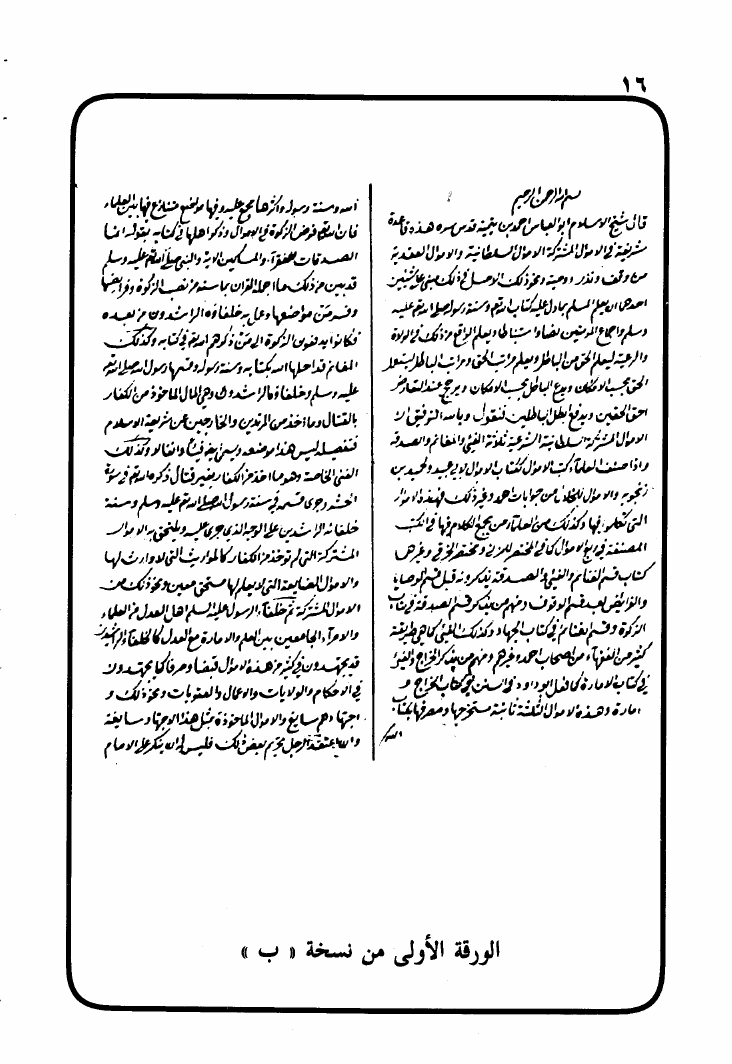 ١٦
بسم الله الرحمن الرحيم
قال شيخ الاسلام ابو العباس احمد بن تيمية قدس سره هذه قاعدة
شريفة في الاموال المشتركة الاموال السلطانية والاموال العقدية
من وقف ونذر ووصية ونحو ذلك الاصل في ذلك مبني على شيئين
احدهما ان يعلم المسلم بما دل عليه كتاب الله تع وسنة رسوله صلى الله تع عليه
وسلم واجماع المؤمنين نصا واستنباطا ويعلم الواقع من ذلك في الولاة
والرعية ليعلم الحق من الباطل ويعلم مراتب الحق ومراتب الباطل ليستعمل
الحق بحسب الامكان ويدع الباطل بحسب الامكان ويرجح عند التعارض
احق الحقين ويدفع ابطل الباطلين فنقول وبالله التوفيق ان
الاموال المشتركة السلطانية الشرعية ثلاثة الفئ والمغانم والصدقة
واذا صنف العلماء كتب الاموال ككتاب الاموال لابي عبيد ولحميد بن
زنجويه والاموال للخلال من جوابات احمد وغير ذلك فهذه الاموال
التي تكلموا فيها وكذلك من العلماء من يجمع الكلام فيها في الكتب
المصنفة في ربع الاموال كما في المختصر للمزني ومختصر الخرقي وغيرهما
كتاب قسم الغنائم والفئ والصدقة يذكرونه قبل قسم الوصايا
والفرائض بعد قسم الوقوف ومنهم من يذكر قسم الصدقة في كتاب
الزكوة وقسم الغنائم في كتاب الجهاد وكذلك الفئ كما هي طريقة
كثير من الفقهاء من اصحاب احمد وغيرهم ومنهم من يذكر الخراج والفئ
في كتاب الامارة كما فعل ابو داود في السنن في كتاب الخراج و
امارة وهذه الاموال الثلثة ثابتة مستخرجها ومصرفها بكتاب
الله
الله وسنة رسوله واكثرها مجمع عليه وفيها مواضع متنازع فيها بين العلماء
فان الله تع فرض الزكوة في الاموال وذكر اهلها في كتابه بقوله انما
الصدقات للفقراء والمساكين الاية والنبي صلى الله تع عليه وسلم
قد بين من ذلك ما اجمله القران بما سنه من نصب الزكوة وفرائضها
وفسر من مواضعها وعمل به خلفاؤه الراشدون من بعده
فكانوا يدفعون الزكوة الى من ذكرهم الله تع في كتابه وكذلك
المغانم قد احلها الله بكتابه وسنة رسوله وقسمها رسول الله صلى الله تع
عليه وسلم وخلفاؤه الراشدون وهي المال الماخوذ من الكفار
بالقتال وما اخذ من المرتدين والخارجين عن شريعة الاسلام
فتفصيله ليس هذا موضعه ويسمى ايضا فيئا وانفالا وكذلك
الفئ الخاص وهو ما اخذ من الكفار بغير قتال ذكره الله تع في سورة
الحشر وجرى قسمه في سنة رسول الله صلى الله تع عليه وسلم وسنة
خلفائه الراشدين على الوجه الذي جرى عليه ويلتحق به الاموال
المشتركة التي لم تؤخذ من الكفار كالمواريث التي لا وارث لها
والاموال الضايعة التي لا يعلم لها مستحق معين ونحو ذلك من
الاموال المشتركة ثم خلفاء الرسول عليه السلم اهل العدل من العلماء
والامراء الجامعين بين العلم والامارة مع العدل كالخلفاء الراشدين
قد يجتهدون في كثير من هذه الاموال قبضا وصرفا كما يجتهدون
في الاحكام والولايات والاعمال والعقوبات ونحو ذلك و
اجتهادهم سايغ والاموال الماخوذة بمثل هذا الاجتهاد سايغة
وان اعتقد الرجل تحريم بعض ذلك فليس له ان ينكر على الامام
الورقة الأولى من نسخة « ب »